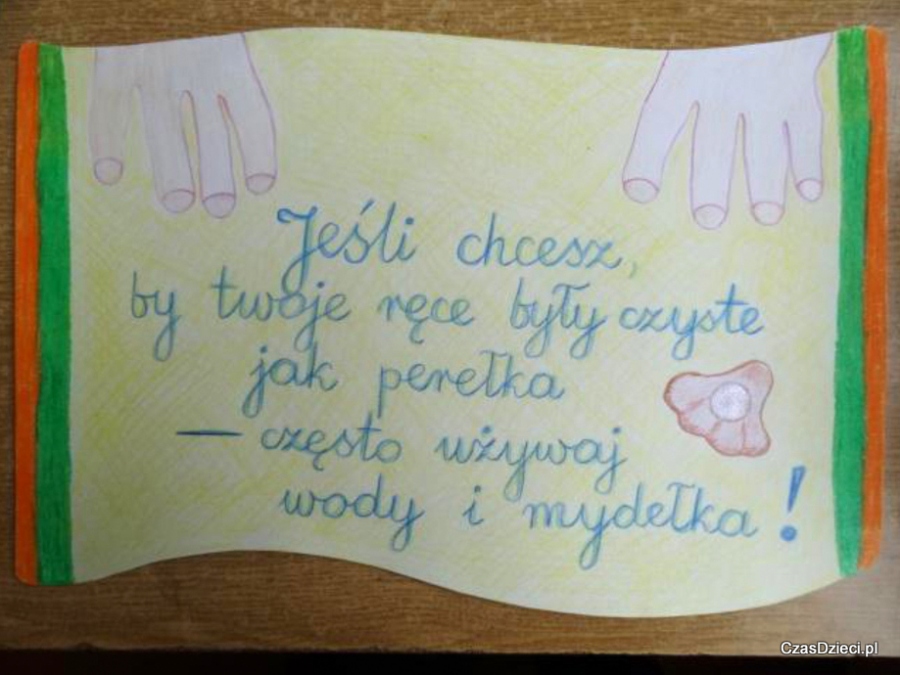 Jeśli chcesz,
by twoje ręce były czyste
jak perełka
— często używaj
wody i mydełka!
CzasDzieci.pl